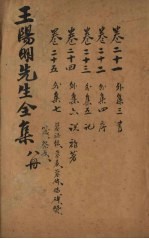 卷二十一 外集三 書
卷二十二 外集四 序
卷二十三 外集五 記
卷二十四 外集六 說 雜著
卷二十五 外集七
王陽明先生全集 八冊